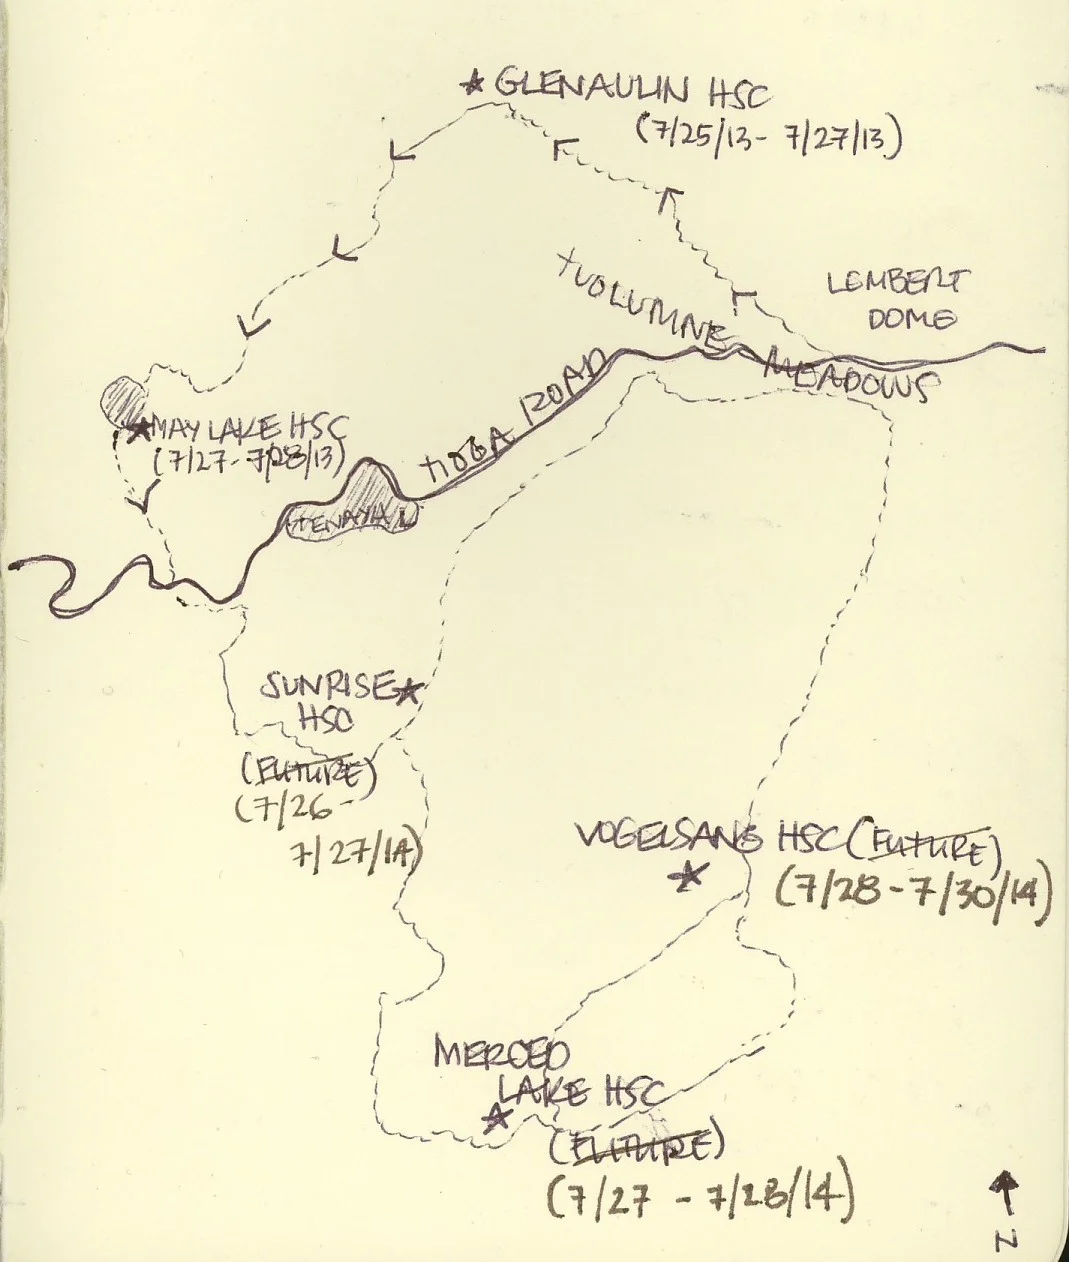 GLENAULIN HSC
(7/25/13 - 7/27/13)
LEMBERT
DOME
TUOLUMNE
MEADOWS
TIOGA ROAD
MAY LAKE HSC
(7/27 - 7/28/13)
TENAYA L
SUNRISE
HSC
(FUTURE)
(7/26 -
7/27/14)
VOGELSANG HSC (FUTURE)
(7/28 - 7/30/14)
MERCED
LAKE HSC
(FUTURE)
(7/27 - 7/28/14)
N